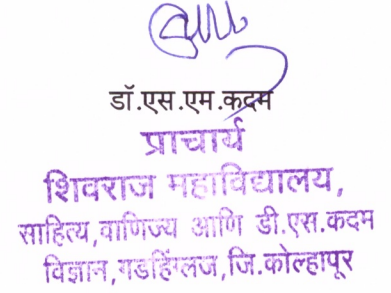 डॉ.एस.एम.कदम
प्राचार्य
शिवराज महाविद्यालय,
साहित्य,वाणिज्य आणि डी.एस.कदम
विज्ञान,गडहिंग्लज,जि.कोल्हापूर